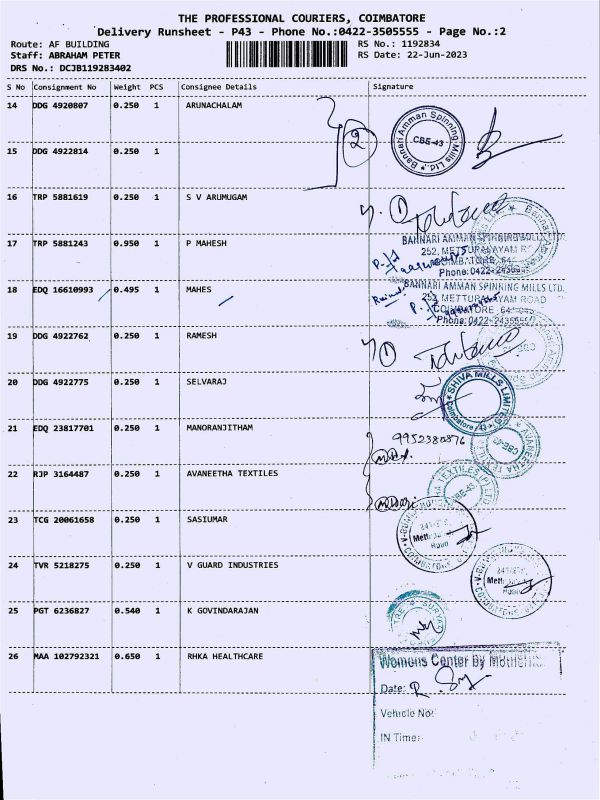 THE PROFESSIONAL COURIERS, COIMBATORE
Delivery Runsheet - P43 - Phone No.:0422-3505555 - Page No.:2
Route: AF BUILDING
RS No.: 1192834
Staff: ABRAHAM PETER
RS Date: 22-Jun-2023
DRS No.: DCJB119283402
S No Consignment No Weight PCS Consignee Details Signature
14 DDG 4920807 0.250 1 ARUNACHALAM
2
Bannari Amman Spinning Mills Ltd.
CBE-43
15 DDG 4922814 0.250 1
16 TRP 5881619 0.250 1 S V ARUMUGAM
17 TRP 5881243 0.950 1 P MAHESH
BANNARI AMMAN SPINNING MILLS LTD.
252, METTUPALAYAM
COIMBATORE
Phone:0422-
18 EDQ 16610993 0.495 1 MAHES
BANNARI AMMAN SPINNING MILLS LTD.
252 METTUPALAYAM ROAD
COIMBATORE
Phone:0422-
19 DDG 4922762 0.250 1 RAMESH
20 DDG 4922775 0.250 1 SELVARAJ
SHIVA MILLS LIMITED
21 EDQ 23817701 0.250 1 MANORANJITHAM
9952380876
AVANEETHA
CBE-43
22 RJP 3164487 0.250 1 AVANEETHA TEXTILES
TEXTILES
CBE-43
23 TCG 20061658 0.250 1 SASIUMAR
24 TVR 5218275 0.250 1 V GUARD INDUSTRIES
25 PGT 6236827 0.540 1 K GOVINDARAJAN
26 MAA 102792321 0.650 1 RHKA HEALTHCARE
Womens Center By
Date:
Vehicle No:
IN Time: